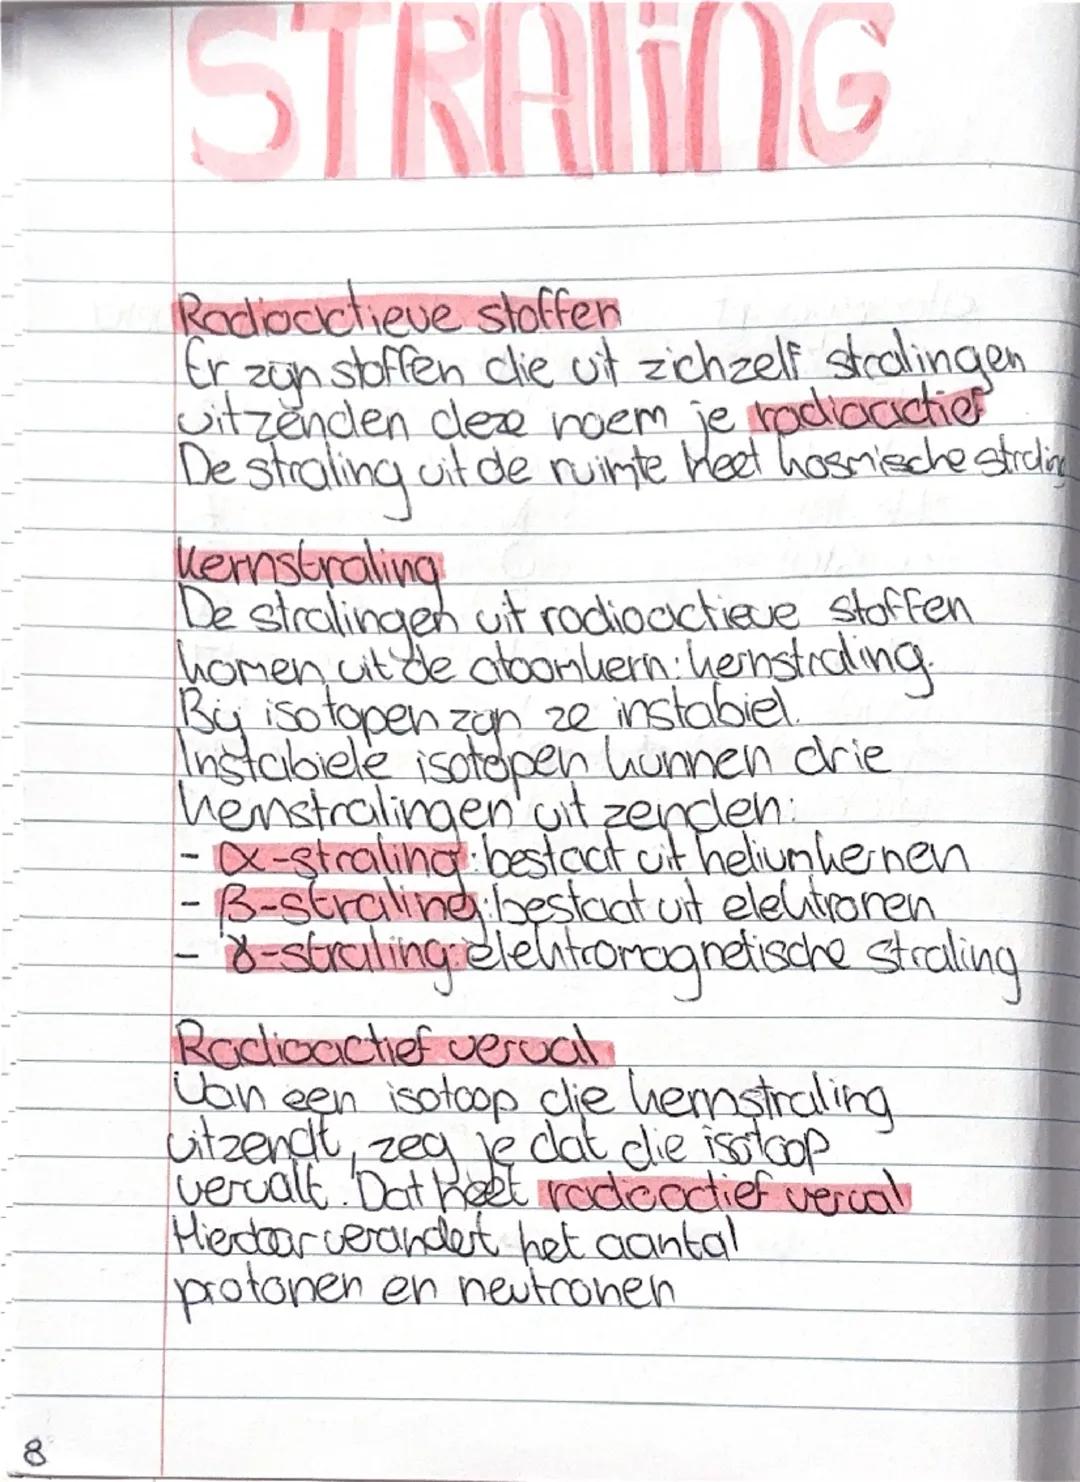 STRALING
Radioactieve stoffen
Er zijn stoffen die uit zichzelf stralingen
uitzenden deze noem je radioactief
De straling uit de ruimte heet kosmische straling
Kernstraling
De stralingen uit radioactieve stoffen
komen uit de atoomkern: kernstraling.
Bij isotopen zijn ze instabiel.
Instabiele isotopen kunnen drie
kernstralingen uit zenden:
- α-straling: bestaat uit heliumkernen
- β-straling: bestaat uit elektronen
- γ-straling: elektromagnetische straling
Radioactief verval
Van een isotoop die kernstraling
uitzendt, zeg je dat die isotoop
vervalt. Dat heet radioactief verval
Hierdoor verandert het aantal
protonen en neutronen
8